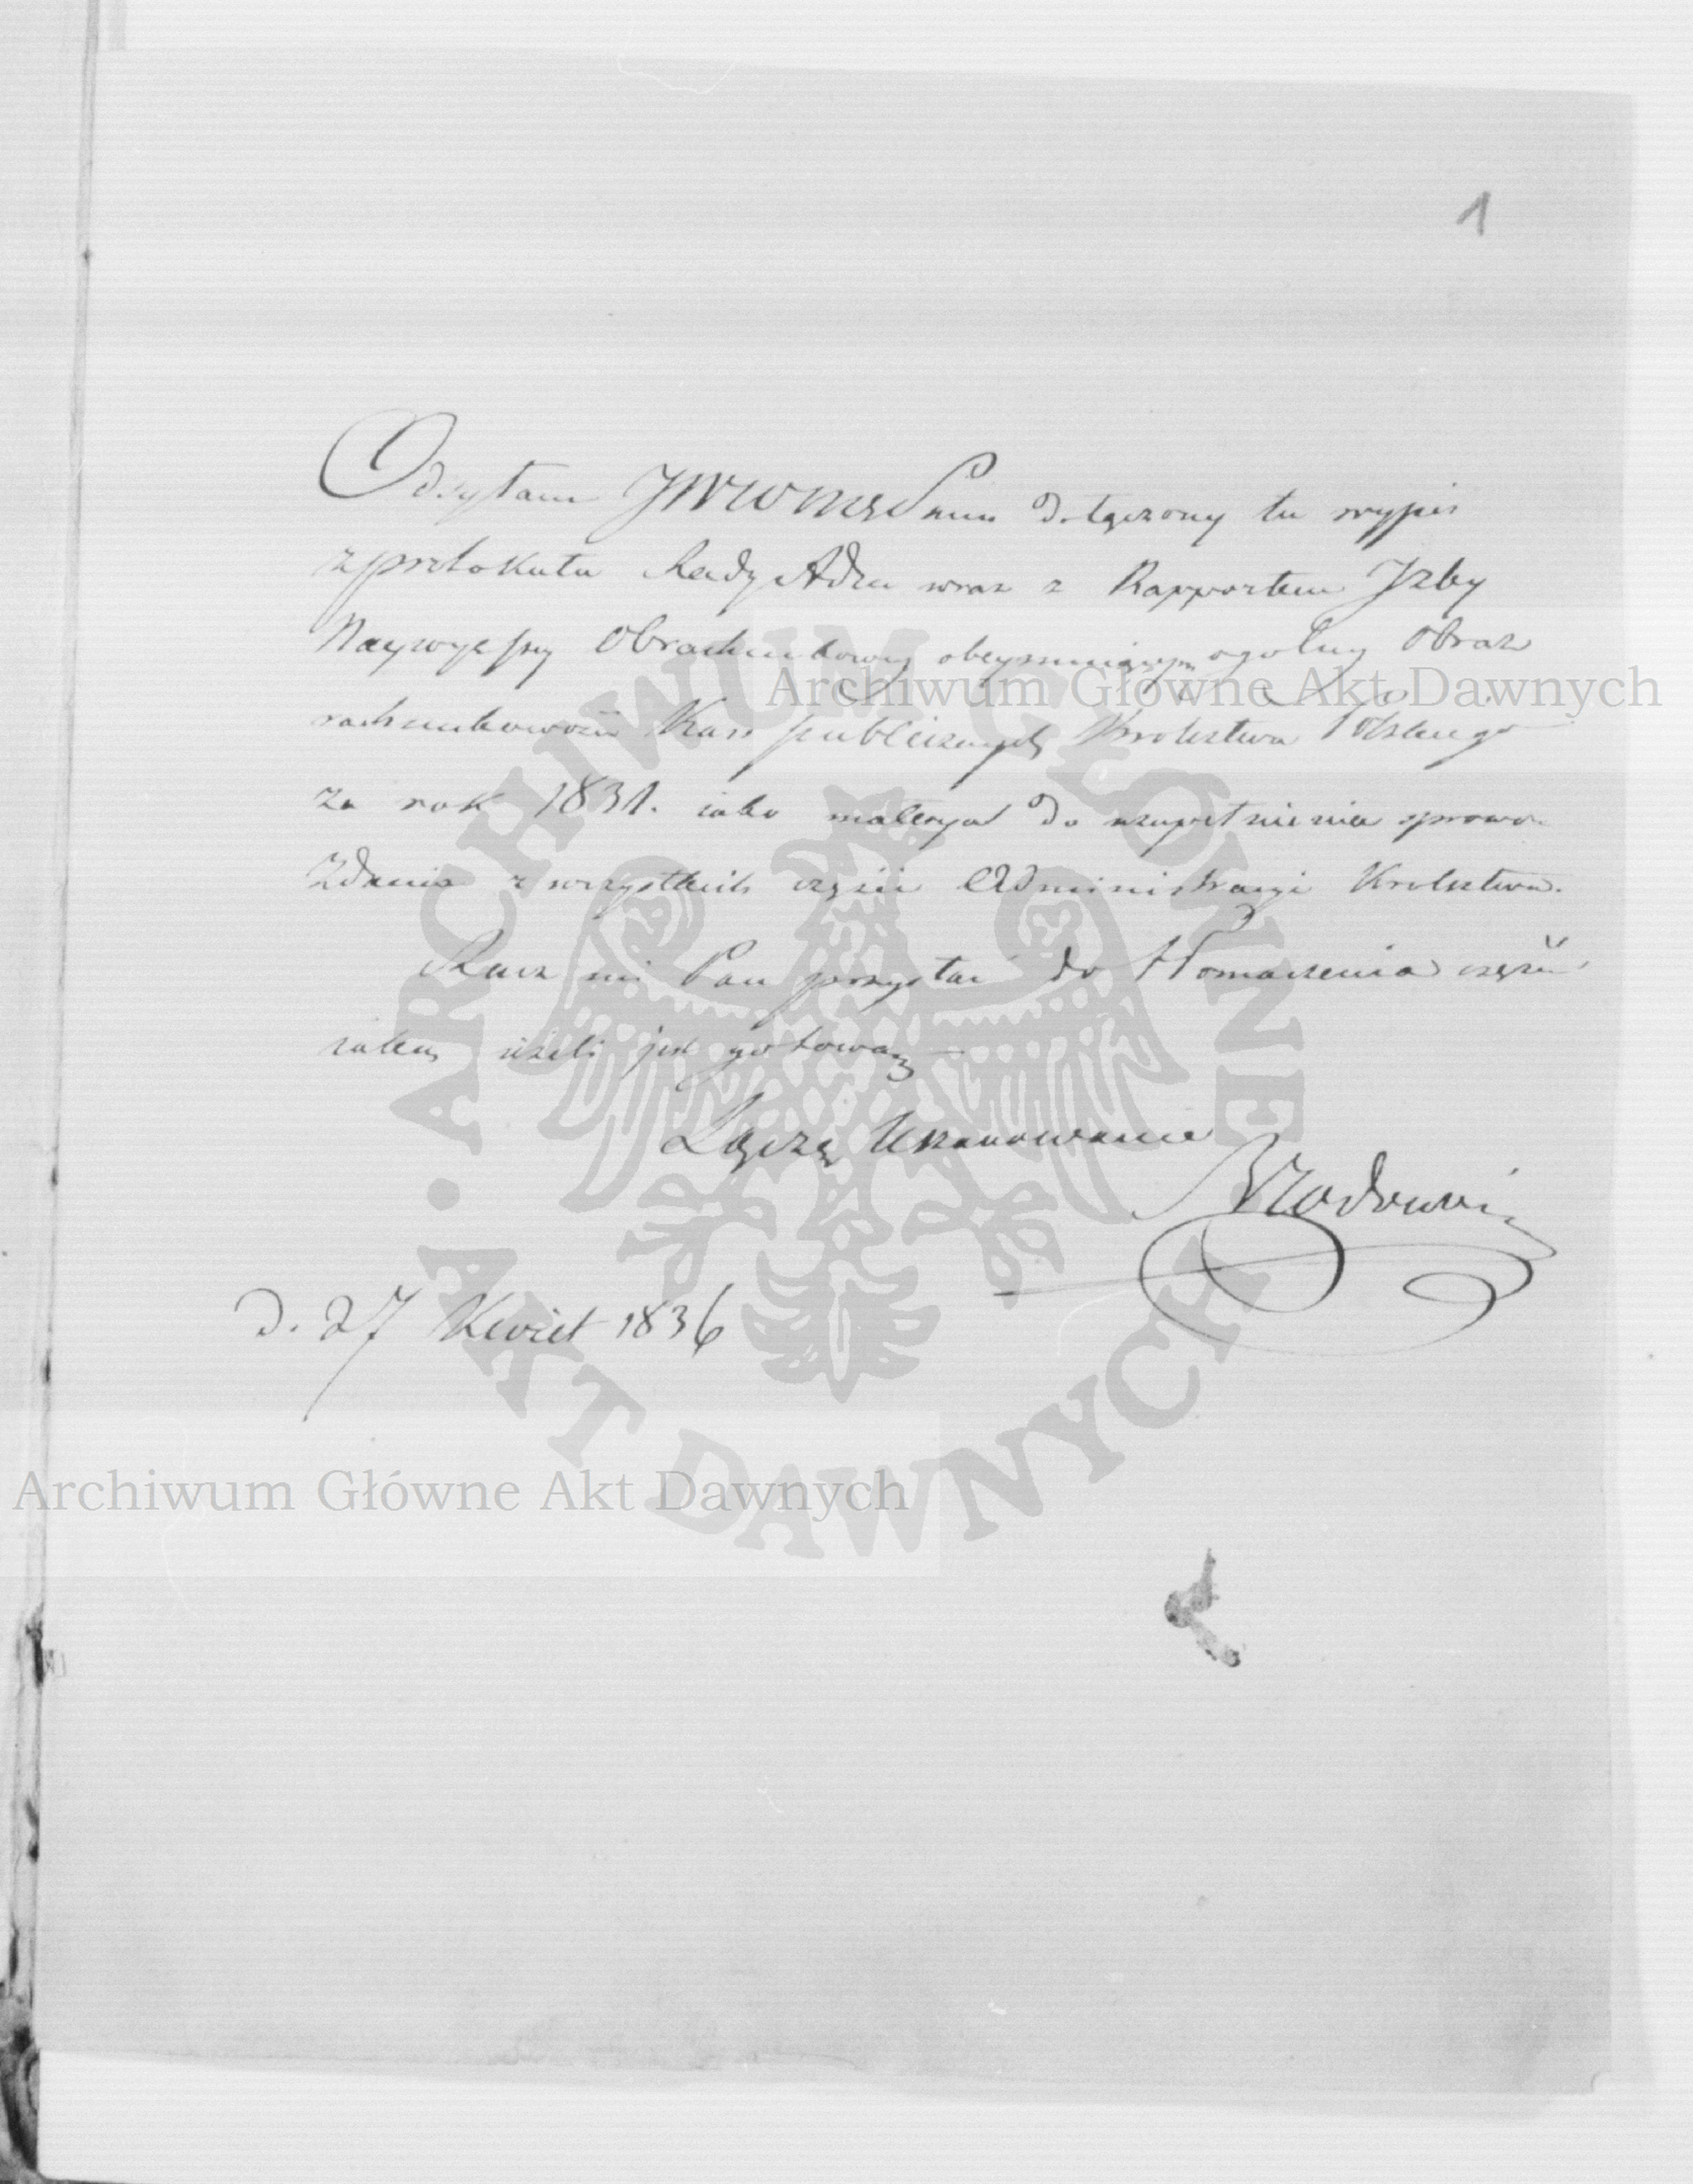 1
Odsyłam JWWMgPanu dołączony tu wypis
z protokułu Rady Adm wraz z Rapportem Jzby
Naywyższy Obrachunkowy obeymuiącym ogolny Obraz
rachunkowości Kass publicznych Krolestwa Polskiego
za rok 1831. iako materyał do uzupełnienia sprawo
zdania z wszystkich części Administracyi Krolestwa.
Racz mi Pan przysłać do tłomaczenia część
iaką ieżeli jest gotową
Łączę Uszanowanie
d. 27 Kwiet 1836
Archiwum Główne Akt Dawnych
Archiwum Główne Akt Dawnych
ARCHIWUM GŁÓWNE • AKT DAWNYCH •